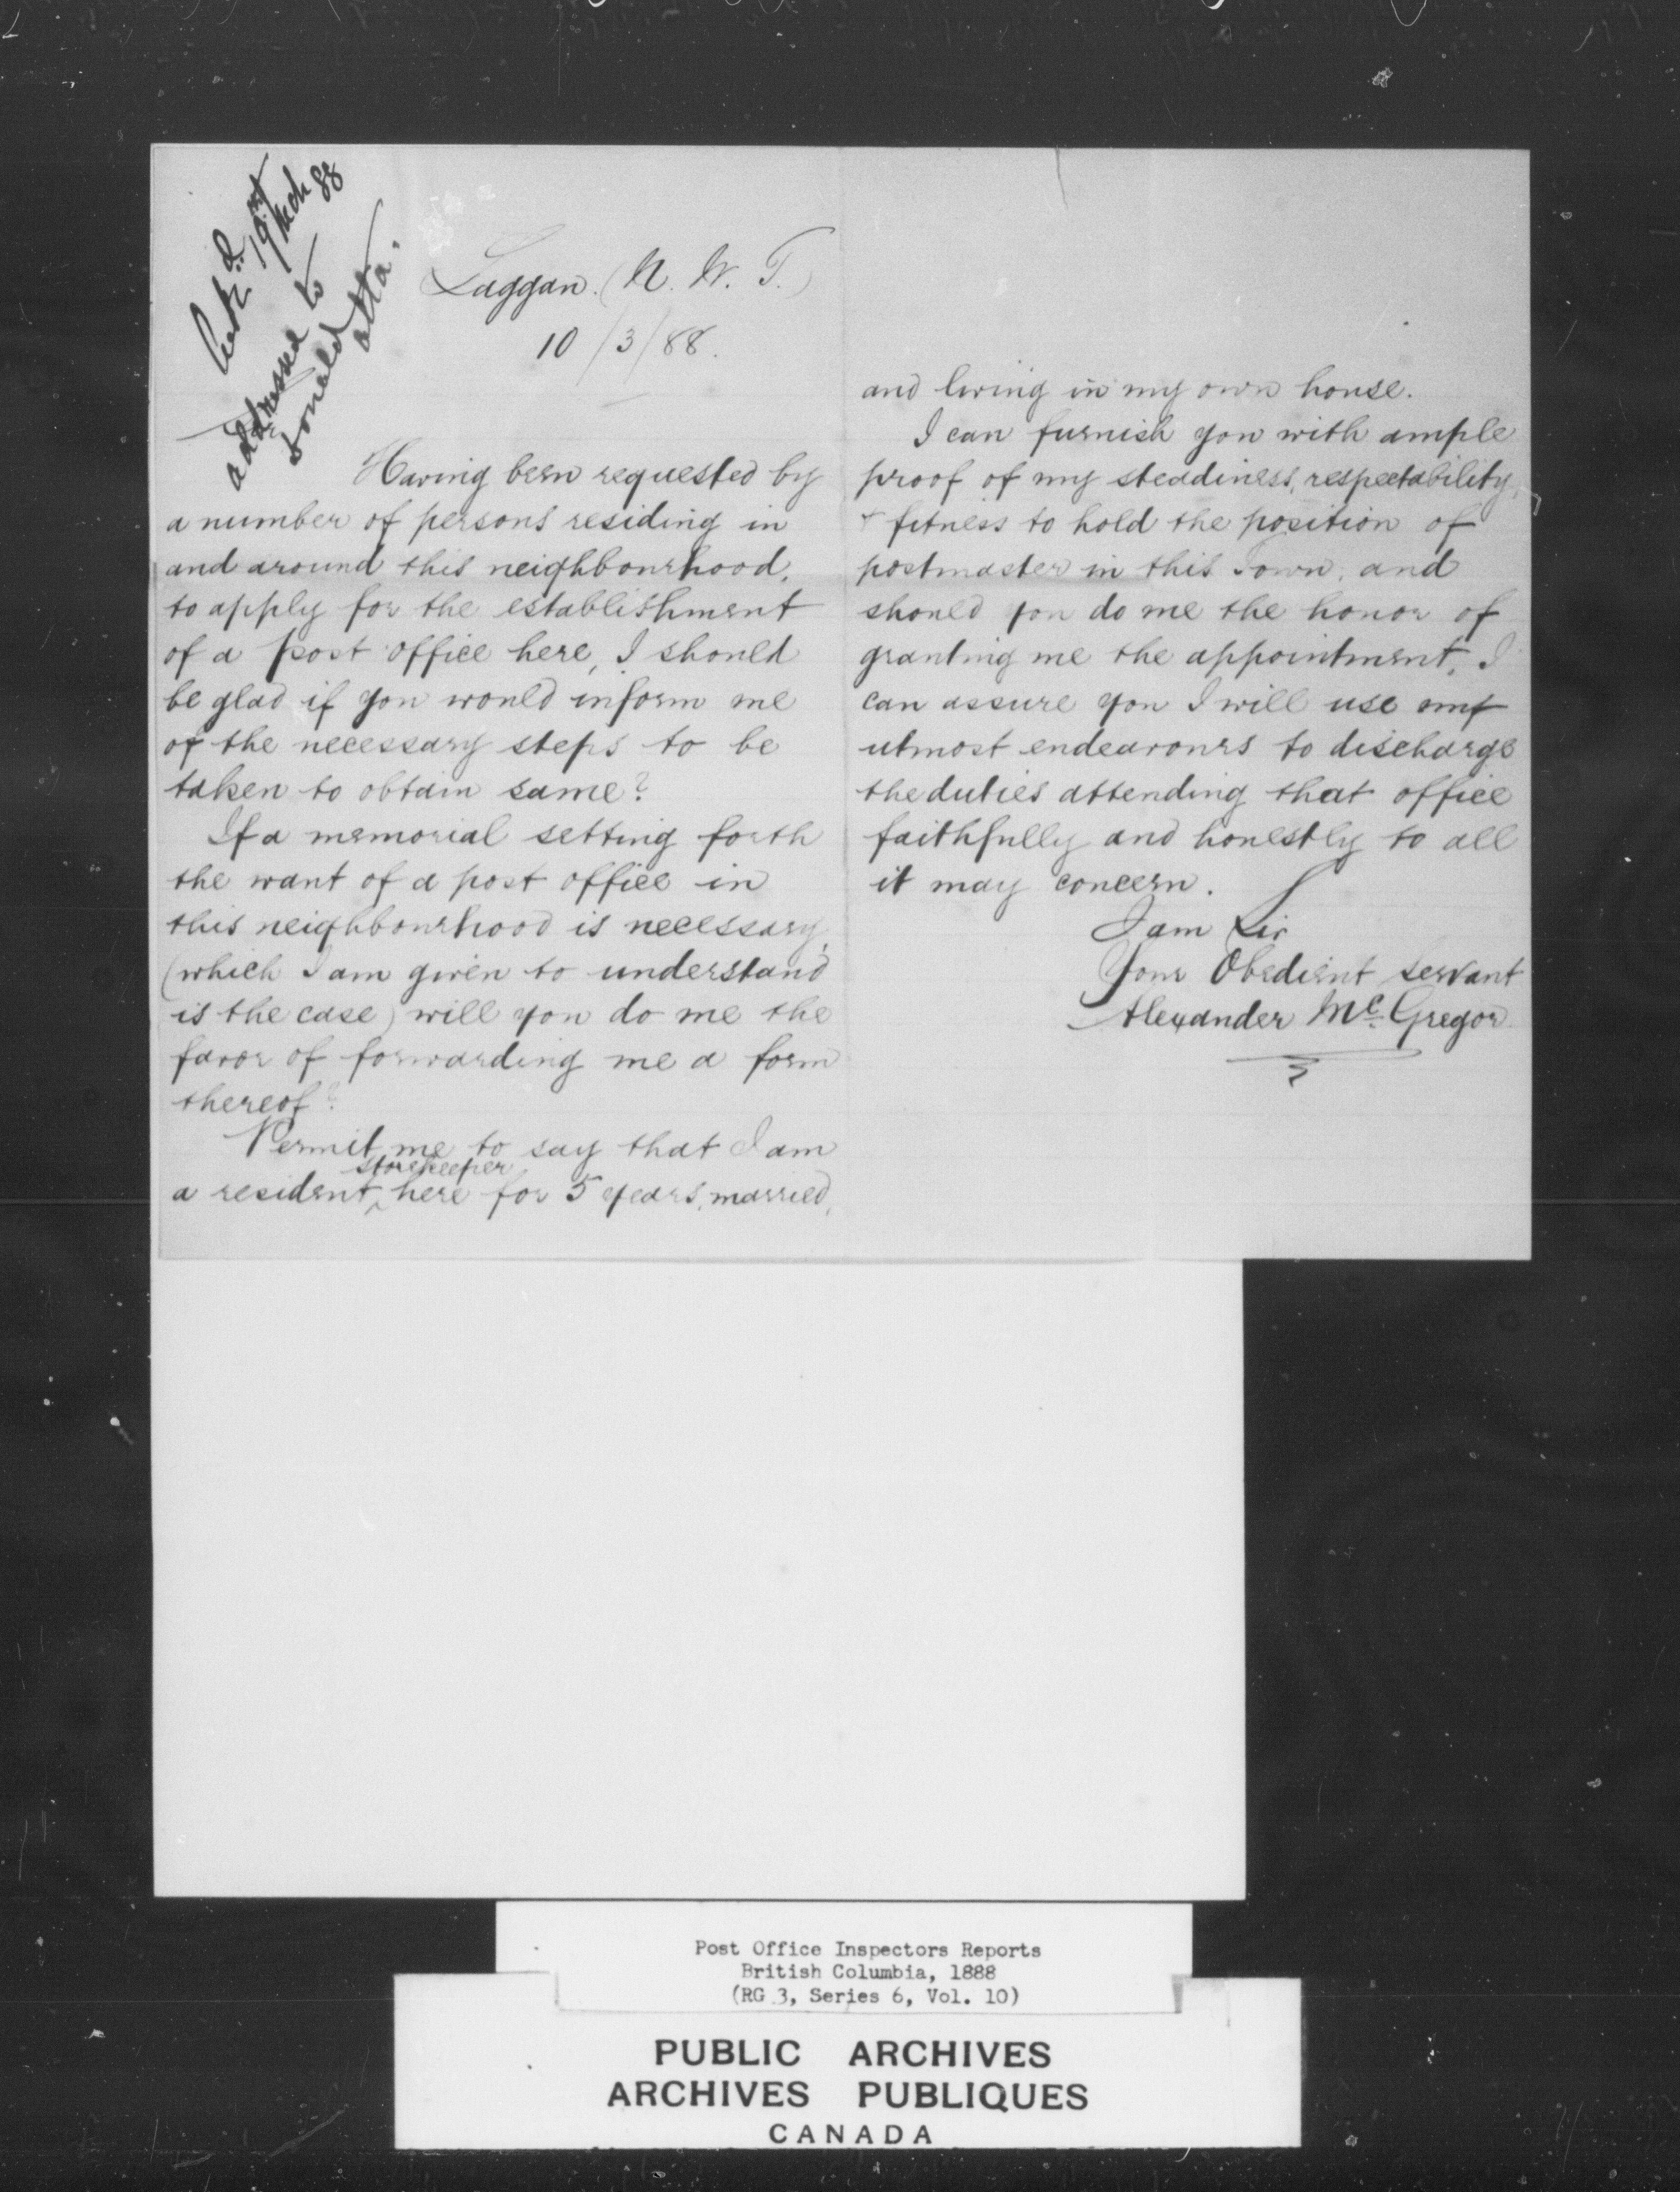 Ackd 19th Mch 88
addressed to
Donald
Atta.
Laggan. (N. W. T.)
10/3/88.
Sir
Having been requested by
a number of persons residing in
and around this neighbourhood,
to apply for the establishment
of a post office here, I should
be glad if you would inform me
of the necessary steps to be
taken to obtain same?
If a memorial setting forth
the want of a post office in
this neighbourhood is necessary,
(which I am given to understand
is the case) will you do me the
favor of forwarding me a form
thereof?
Permit me to say that I am
storekeeper
a resident ^ here for 5 years, married,
and living in my own house.
I can furnish you with ample
proof of my steadiness, respectability,
+ fitness to hold the position of
postmaster in this Town, and
should you do me the honor of
granting me the appointment, I
can assure you I will use my
utmost endeavours to discharge
the duties attending that office
faithfully and honestly to all
it may concern.
I am Sir
Your Obedient servant
Alexander McGregor
Post Office Inspectors Reports
British Columbia, 1888
(RG 3, Series 6, Vol. 10)
PUBLIC ARCHIVES
ARCHIVES PUBLIQUES
CANADA